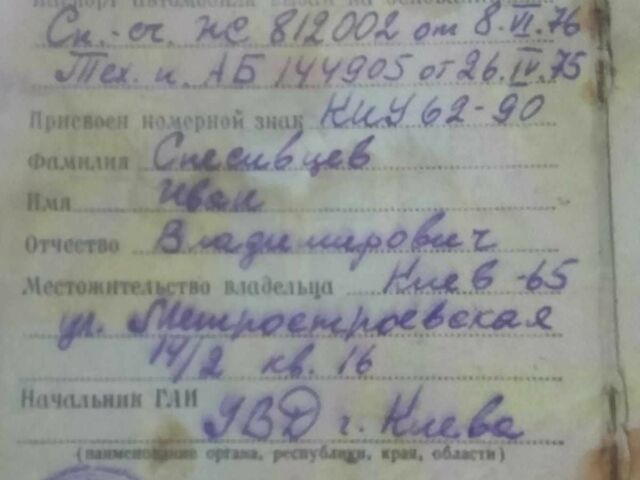 паспорт автомобиля выдан на основании
Сп.-сч. НС 812002 от 8.VI.76
Тех. п. АБ 144905 от 26.IV.75
Присвоен номерной знак КИУ 62-90
Фамилия Спесивцев
Имя Иван
Отчество Владимирович
Местожительство владельца Киев-65
ул. Метростроевская
14/2 кв. 16
Начальник ГАИ
УВД г. Киева
(наименование органа, республики, края, области)